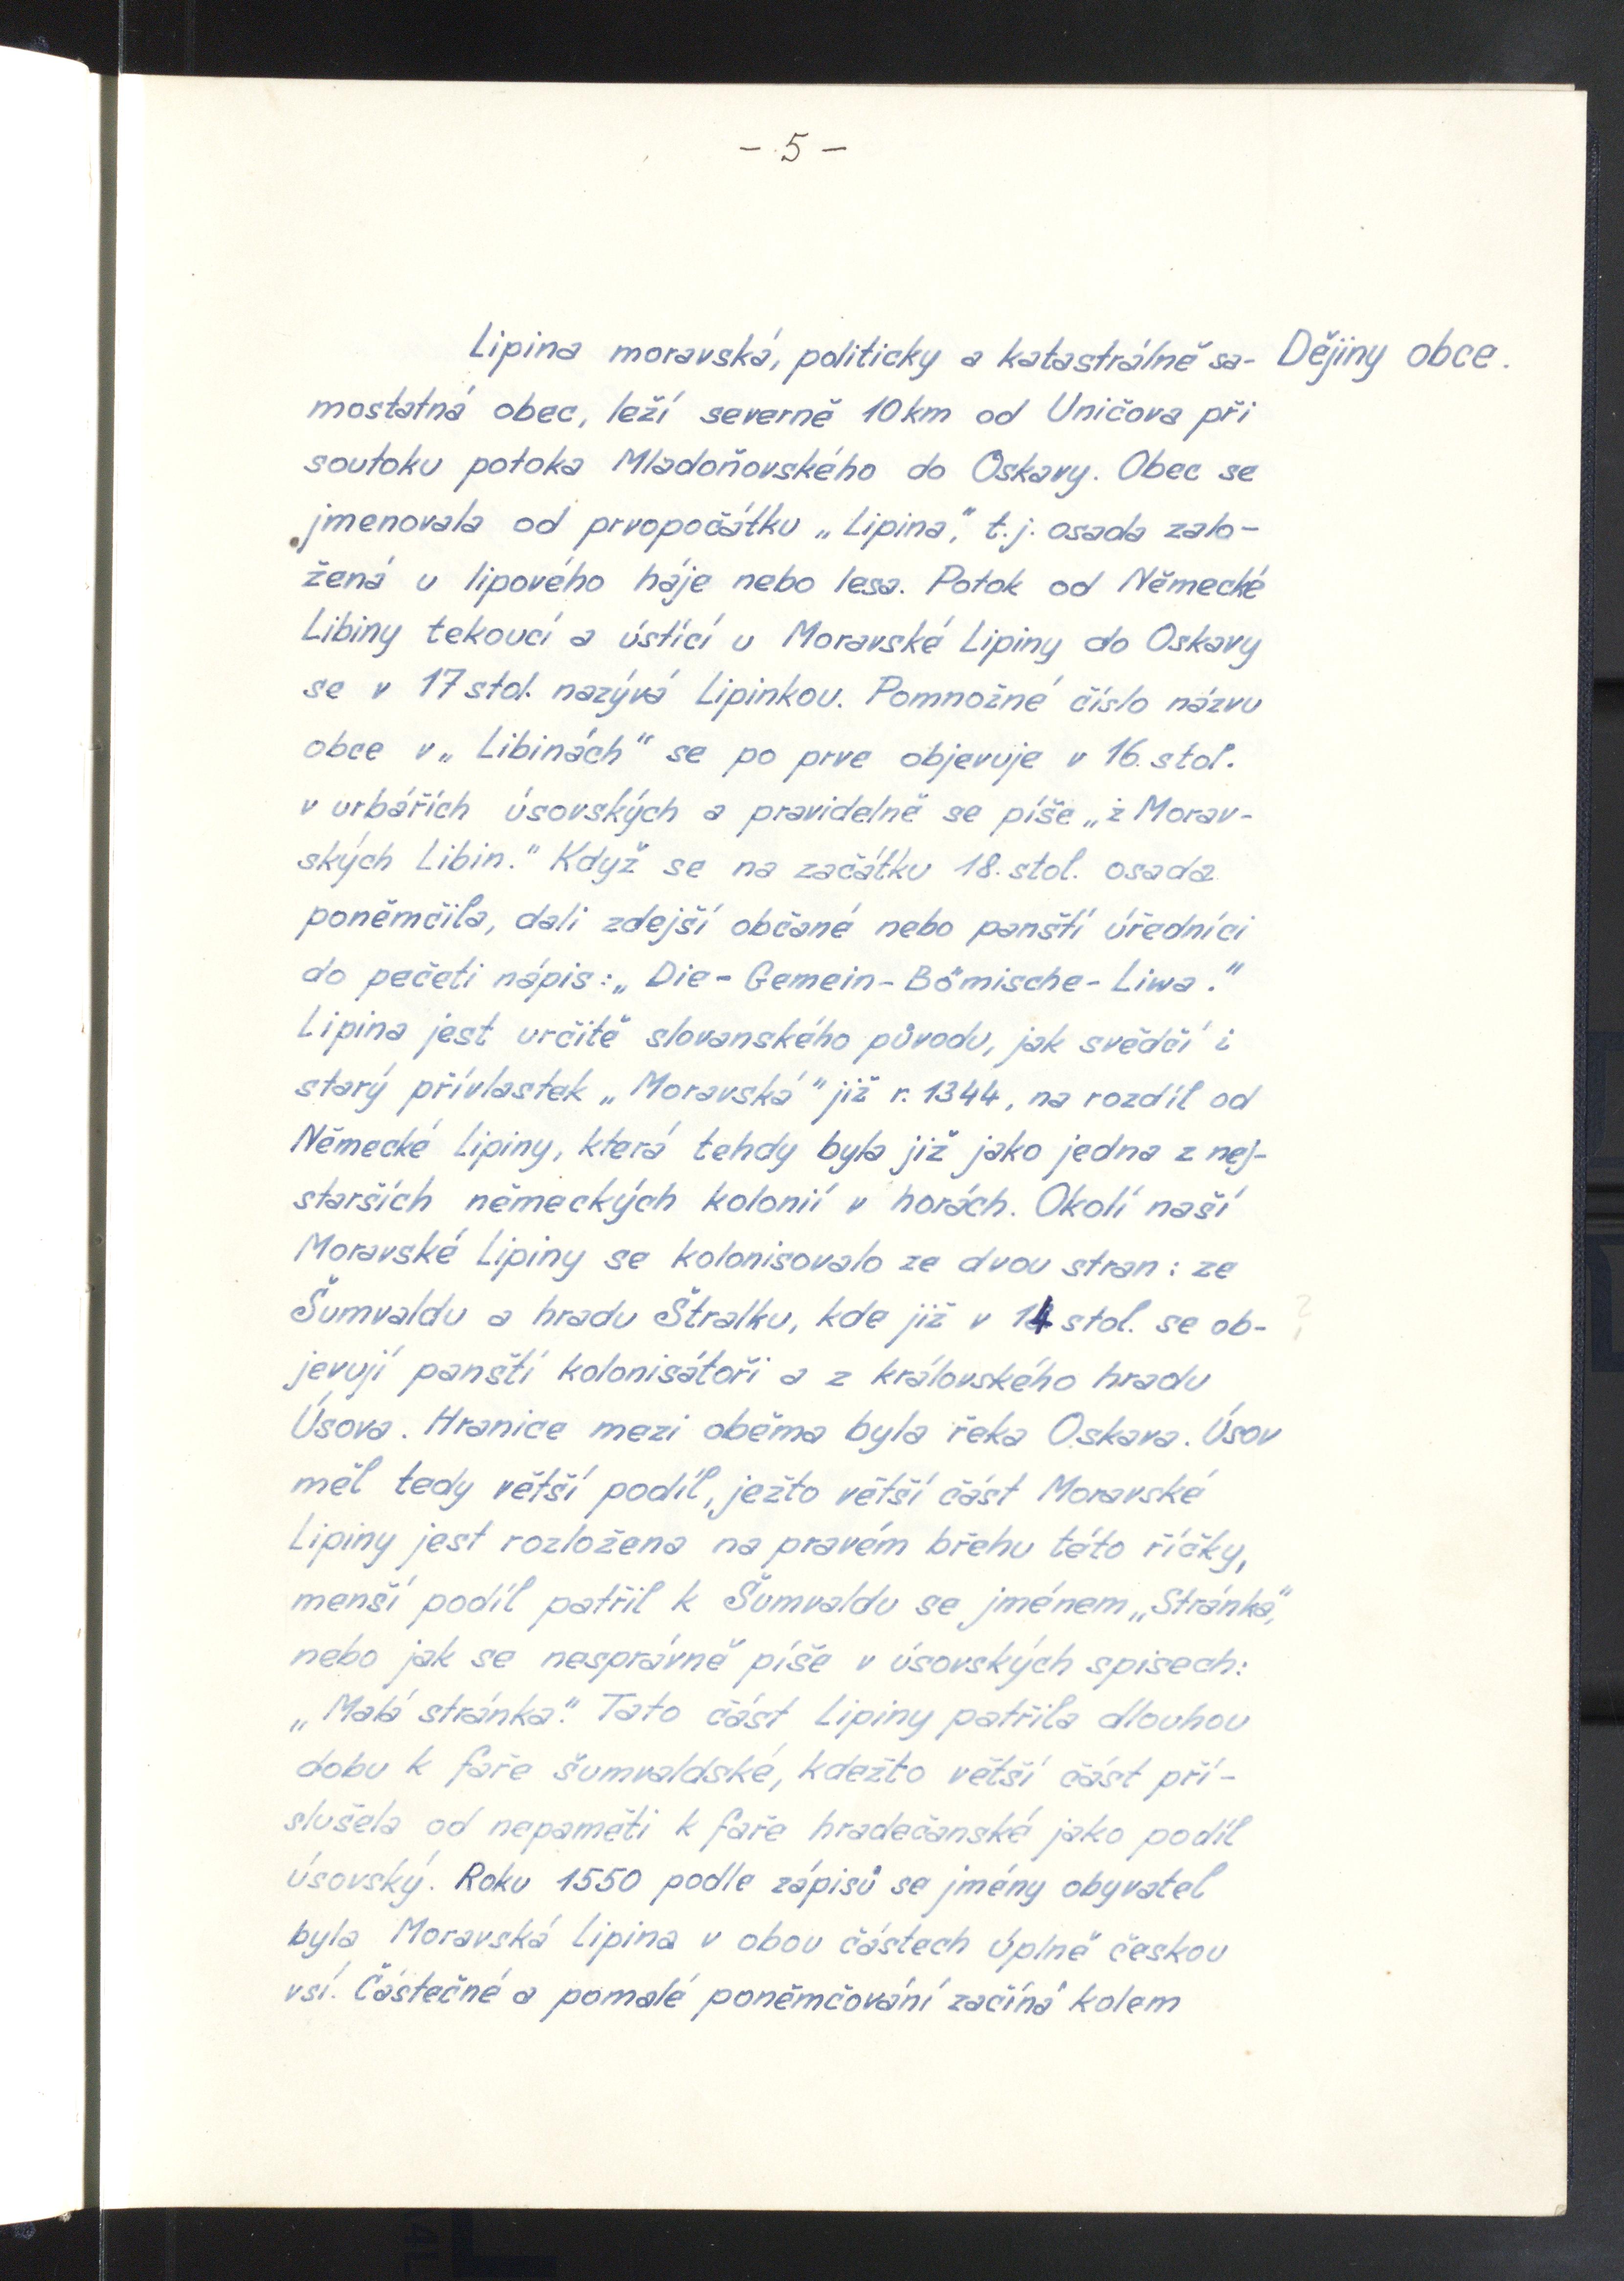 - 5 -
Dějiny obce.
Lipina moravská, politicky a katastrálně sa-
mostatná obec, leží severně 10 km od Uničova při
soutoku potoka Mladoňovského do Oskavy. Obec se
jmenovala od prvopočátku „Lipina“, t.j. osada zalo-
žená u lipového háje nebo lesa. Potok od Německé
Libiny tekoucí a ústící u Moravské Lipiny do Oskavy
se v 17 stol. nazývá Lipinkou. Pomnožné číslo názvu
obce v „Libinách“ se po prve objevuje v 16. stol.
v urbářích úsovských a pravidelně se píše „z Morav-
ských Libin.“ Když se na začátku 18. stol. osada
poněmčila, dali zdejší občané nebo panští úředníci
do pečeti nápis: „Die-Gemein-Bömische-Liwa.“
Lipina jest určitě slovanského původu, jak svědčí i
starý přívlastek „Moravská“ již r. 1344, na rozdíl od
Německé Lipiny, která tehdy byla již jako jedna z nej-
starších německých kolonií v horách. Okolí naší
Moravské Lipiny se kolonisovalo ze dvou stran: ze
Šumvaldu a hradu Štralku, kde již v 14 stol. se ob- ?
jevují panští kolonisátoři a z královského hradu
Úsova. Hranice mezi oběma byla řeka Oskava. Úsov
měl tedy větší podíl, ježto větší část Moravské
Lipiny jest rozložena na pravém břehu této říčky,
menší podíl patřil k Šumvaldu se jménem „Stránka“,
nebo jak se nesprávně píše v úsovských spisech:
„Malá stránka“. Tato část Lipiny patřila dlouhou
dobu k faře šumvaldské, kdežto větší část pří-
slušela od nepaměti k faře hradečanské jako podíl
úsovský. Roku 1550 podle zápisů se jmény obyvatel
byla Moravská Lipina v obou částech úplně českou
vsí. Částečné a pomalé poněmčování začíná kolem